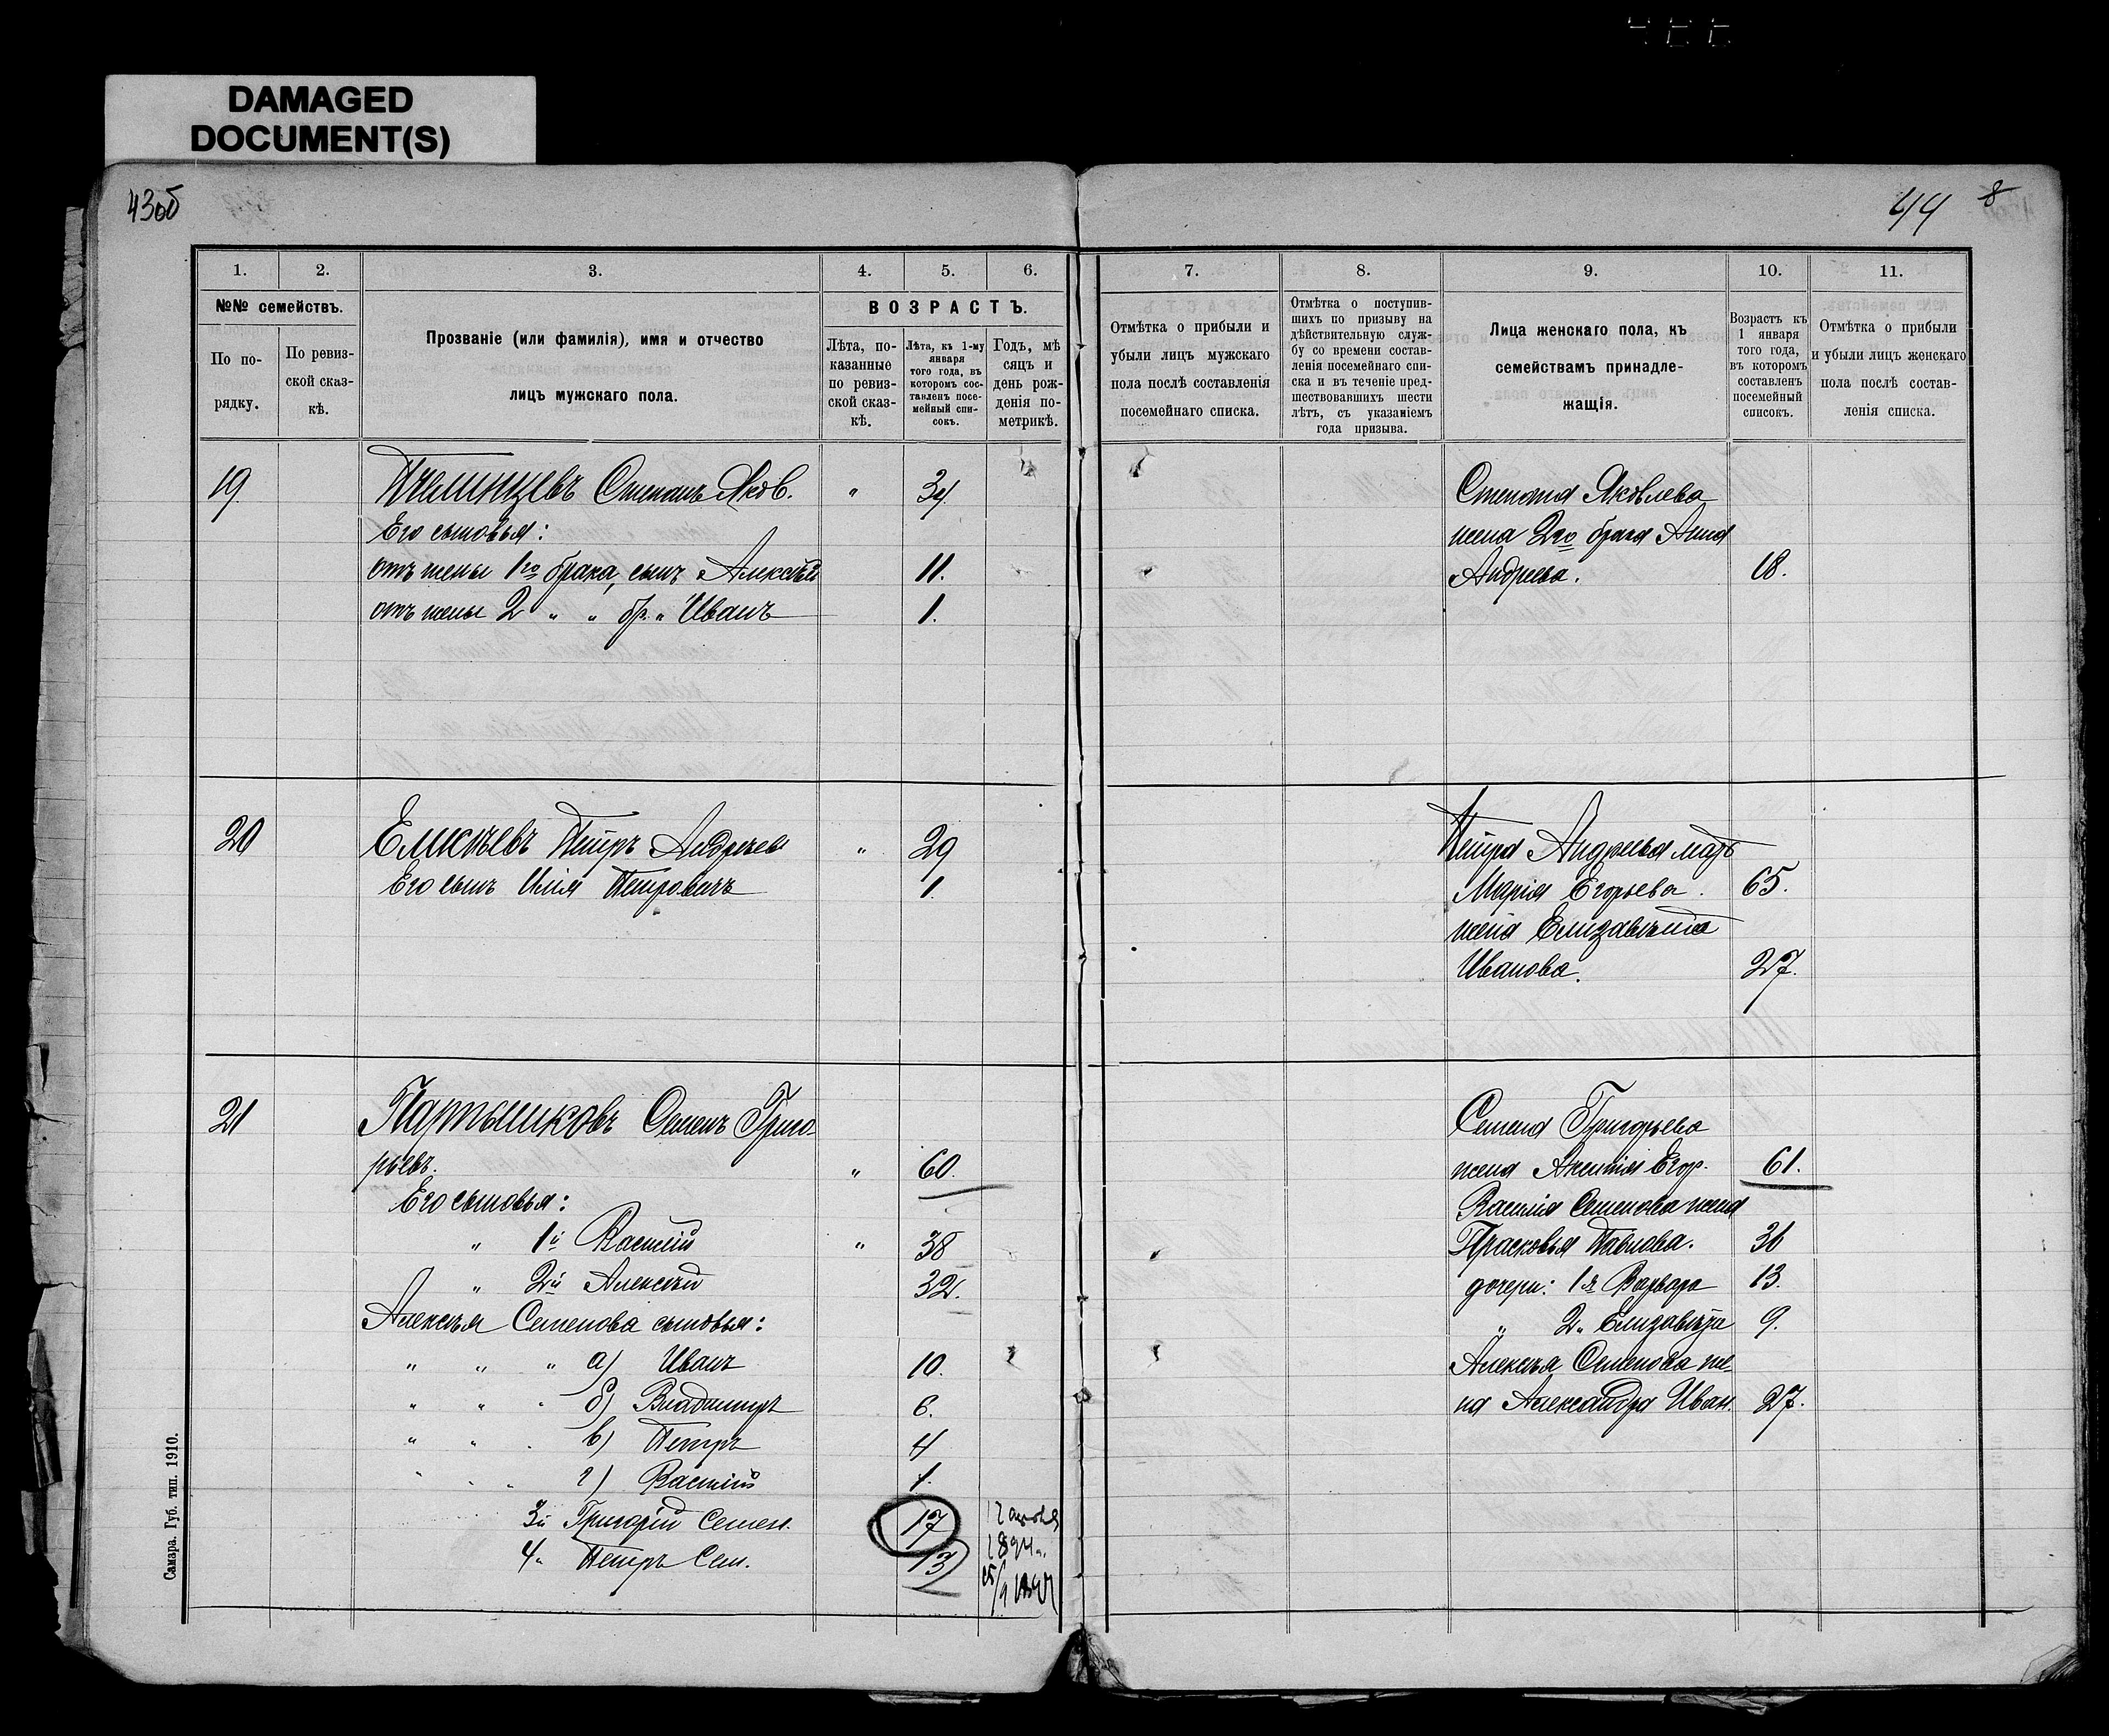 DAMAGED
DOCUMENT(S)
43об
44
8
1.
2.
3.
4.
5.
6.
№№ семействъ.
По по-
рядку.
По ревиз-
ской сказ-
кѣ.
Прозваніе (или фамилія), имя и отчество
лицъ мужскаго пола.
ВОЗРАСТЪ.
Лѣта, по-
казанные
по ревиз-
ской сказ-
кѣ.
Лѣта, къ 1-му
января
того года, въ
которомъ сос-
тавленъ посе-
мейный спи-
сокъ.
Годъ, мѣ
сяцъ и
день рож-
денія по-
метрикѣ.
7.
8.
9.
10.
11.
Отмѣтка о прибыли и
убыли лицъ мужскаго
пола послѣ составленія
посемейнаго списка.
Отмѣтка о поступив-
шихъ по призыву на
дѣйствительную служ-
бу со времени состав-
ленія посемейнаго спи-
ска и въ теченіе пред-
шествовавшихъ шести
лѣтъ, съ указаніемъ
года призыва.
Лица женскаго пола, къ
семействамъ принадле-
жащія.
Возрастъ къ
1 января
того года,
въ которомъ
составленъ
посемейный
списокъ.
Отмѣтка о прибыли
и убыли лицъ женскаго
пола послѣ состав-
ленія списка.
19 Пчелинцевъ Степанъ Яков. " 34
Его сыновья:
отъ жены 1го брака, сынъ Алексѣй 11.
отъ жены 2 " " бр. " Иванъ 1.
Степана Яковлева
жена 2го брака Анна
Андреева. 18.
20 Елисѣевъ Петръ Андреев " 29
Его сынъ Илія Петровичъ 1.
Петра Андреева мать
Марія Егорьева. 65.
жена Елизавета
Иванова. 27.
21 Партышковъ Семенъ Григо-
рьевъ. " 60.
Его сыновья:
" 1й Василій " 38
" 2й Алексѣй 32.
Алексѣя Семенова сыновья:
" " " а) Иванъ 10.
" " " б) Владиміръ 6.
" " " в) Петръ 4
" " " г) Василій 1.
3й Григорій Семен. 17
1894г.
4" Петръ Сем. 13
Семена Григорьева
жена Аксинія Егор. 61.
Василія Семенова жена
Прасковья Павлова. 36
дочери: 1я Варвара 13.
" 2" Елизавета 9.
Алексѣя Семенова же-
на Александра Иван. 27.
Самара. Губ. тип. 1910.